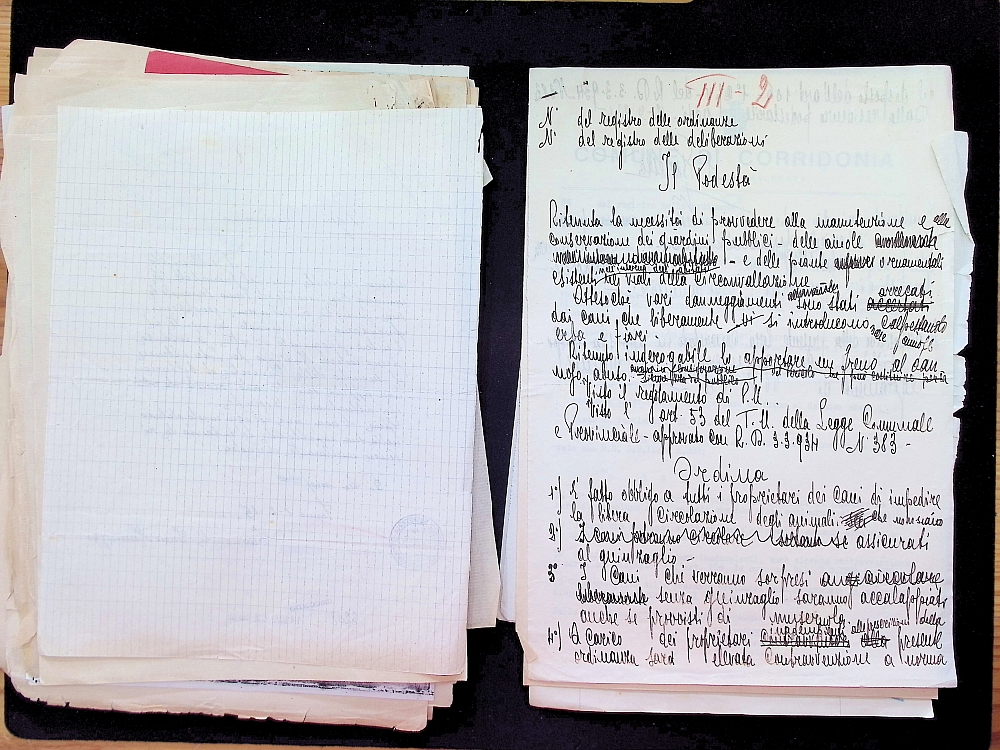 III-2
N° del registro delle ordinanze
N° del registro delle deliberazioni
COMUNE DI CORRIDONIA
Il Podestà
Ritenuta la necessità di provvedere alla manutenzione e alla
conservazione dei giardini pubblici - delle aiuole
- e delle piante ornamentali
nell'interno dell'abitato
esistenti nei viali della Circonvallazione
Attesochè vari danneggiamenti sono stati arrecati
dai cani, che liberamente vi si introducono calpestando
erba e fiori -
Ritenuto inderogabile lo apportare un freno al dan
no
Visto il regolamento di P.U.
Visto l'art. 53 del T.U. della Legge Comunale
e Provinciale - approvato con R.D. 3.3.934 N° 383 -
Ordina
1°) E' fatto obbligo a tutti i proprietari dei Cani di impedire
la libera Circolazione degli animali che non siano
2°) I cani potranno circolare soltanto se assicurati
al guinzaglio -
3° I Cani che verranno sorpresi a circolare
liberamente senza guinzaglio saranno accalappiati
anche se provvisti di museruola.
4°) A Carico dei proprietari inadempienti alle prescrizioni della presente
ordinanza sarà elevata Contravvenzione a norma